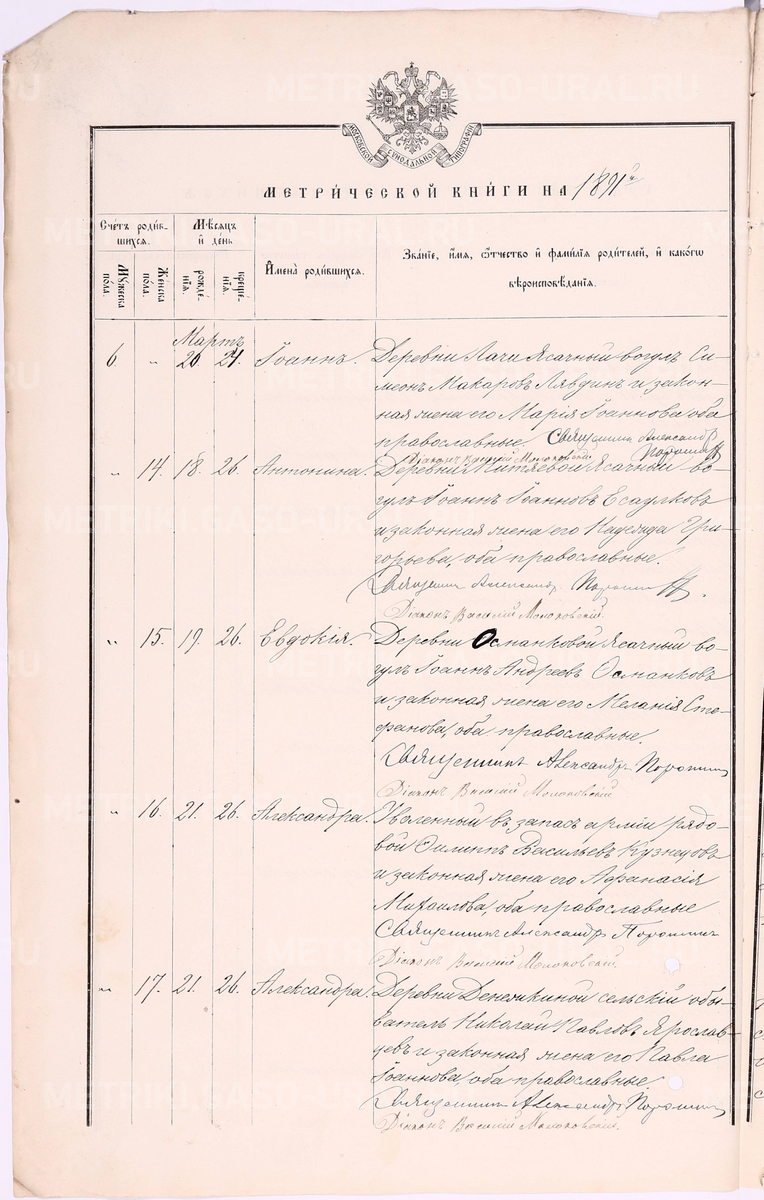 МОСКОВСКОЙ СѴНОДАЛЬНОЙ ТИПОГРАФІИ
МЕТРИ́ЧЕСКОЙ КНИ́ГИ НА 1891й
Сче́тъ роди́в-
шихся.
Мѣ́сяцъ
и҆ де́нь
И҆мена̀ роди́вшихся.
Зва́нїе, и҆́мя, ѻ҆́тчество и҆ фами́лїя роди́телей, и҆ како́гѡ
вѣроисповѣ́данїя.
Мꙋ́жеска по́ла.
Же́нска по́ла.
рожде́-
нїѧ.
креще́-
нїѧ.
Мартъ
6. „ 20. 21. Іоаннъ. Деревни Лачи Ясачный вогулъ Си-
меонъ Макаровъ Лявдинъ и закон-
ная жена его Марія Іоаннова оба
православные. Священникъ Александръ
Порошинъ
Діаконъ Василій Молоковскій
„ 14. 18. 26. Антонина. Деревни Митяевой Ясачный во-
гулъ Іоаннъ Іоанновъ Есаулковъ
и законная жена его Надежда Гри-
горьева, оба православные.
Священникъ Александръ Порошинъ.
Діаконъ Василій Молоковскій.
„ 15. 19. 26. Евдокія. Деревни Османковой Ясачный во-
гулъ Іоаннъ Андреевъ Османковъ
и законная жена его Меланія Сте-
фанова, оба православные.
Священникъ Александръ Порошинъ
Діаконъ Василій Молоковскій
„ 16. 21. 26. Александра. Уволенный въ запасъ арміи рядо-
вой Филиппъ Васильевъ Кузнецовъ
и законная жена его Афанасія
Михаилова, оба православные
Священникъ Александръ Порошинъ
Діаконъ Василій Молоковскій
„ 17. 21. 26. Александра. Деревни Денежкиной сельскій обы-
ватель Николай Павловъ Ярослав-
цевъ и законная жена его Павла
Іоаннова, оба православные.
Священникъ Александръ Порошинъ
Діаконъ Василій Молоковскій.